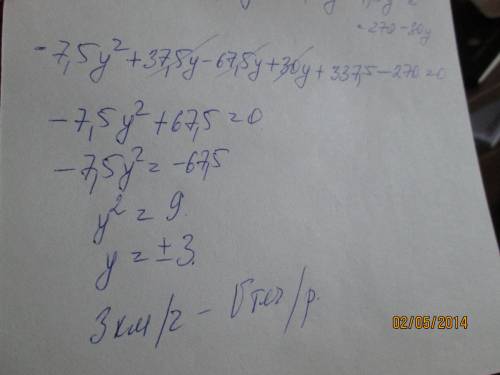 -270-30y
-7,5y² + 37,5y - 67,5y + 30y + 337,5 - 270 = 0
-7,5y² + 67,5 = 0
-7,5y² = -67,5
y² = 9.
y = ± 3.
3 км/г -
02/05/2014